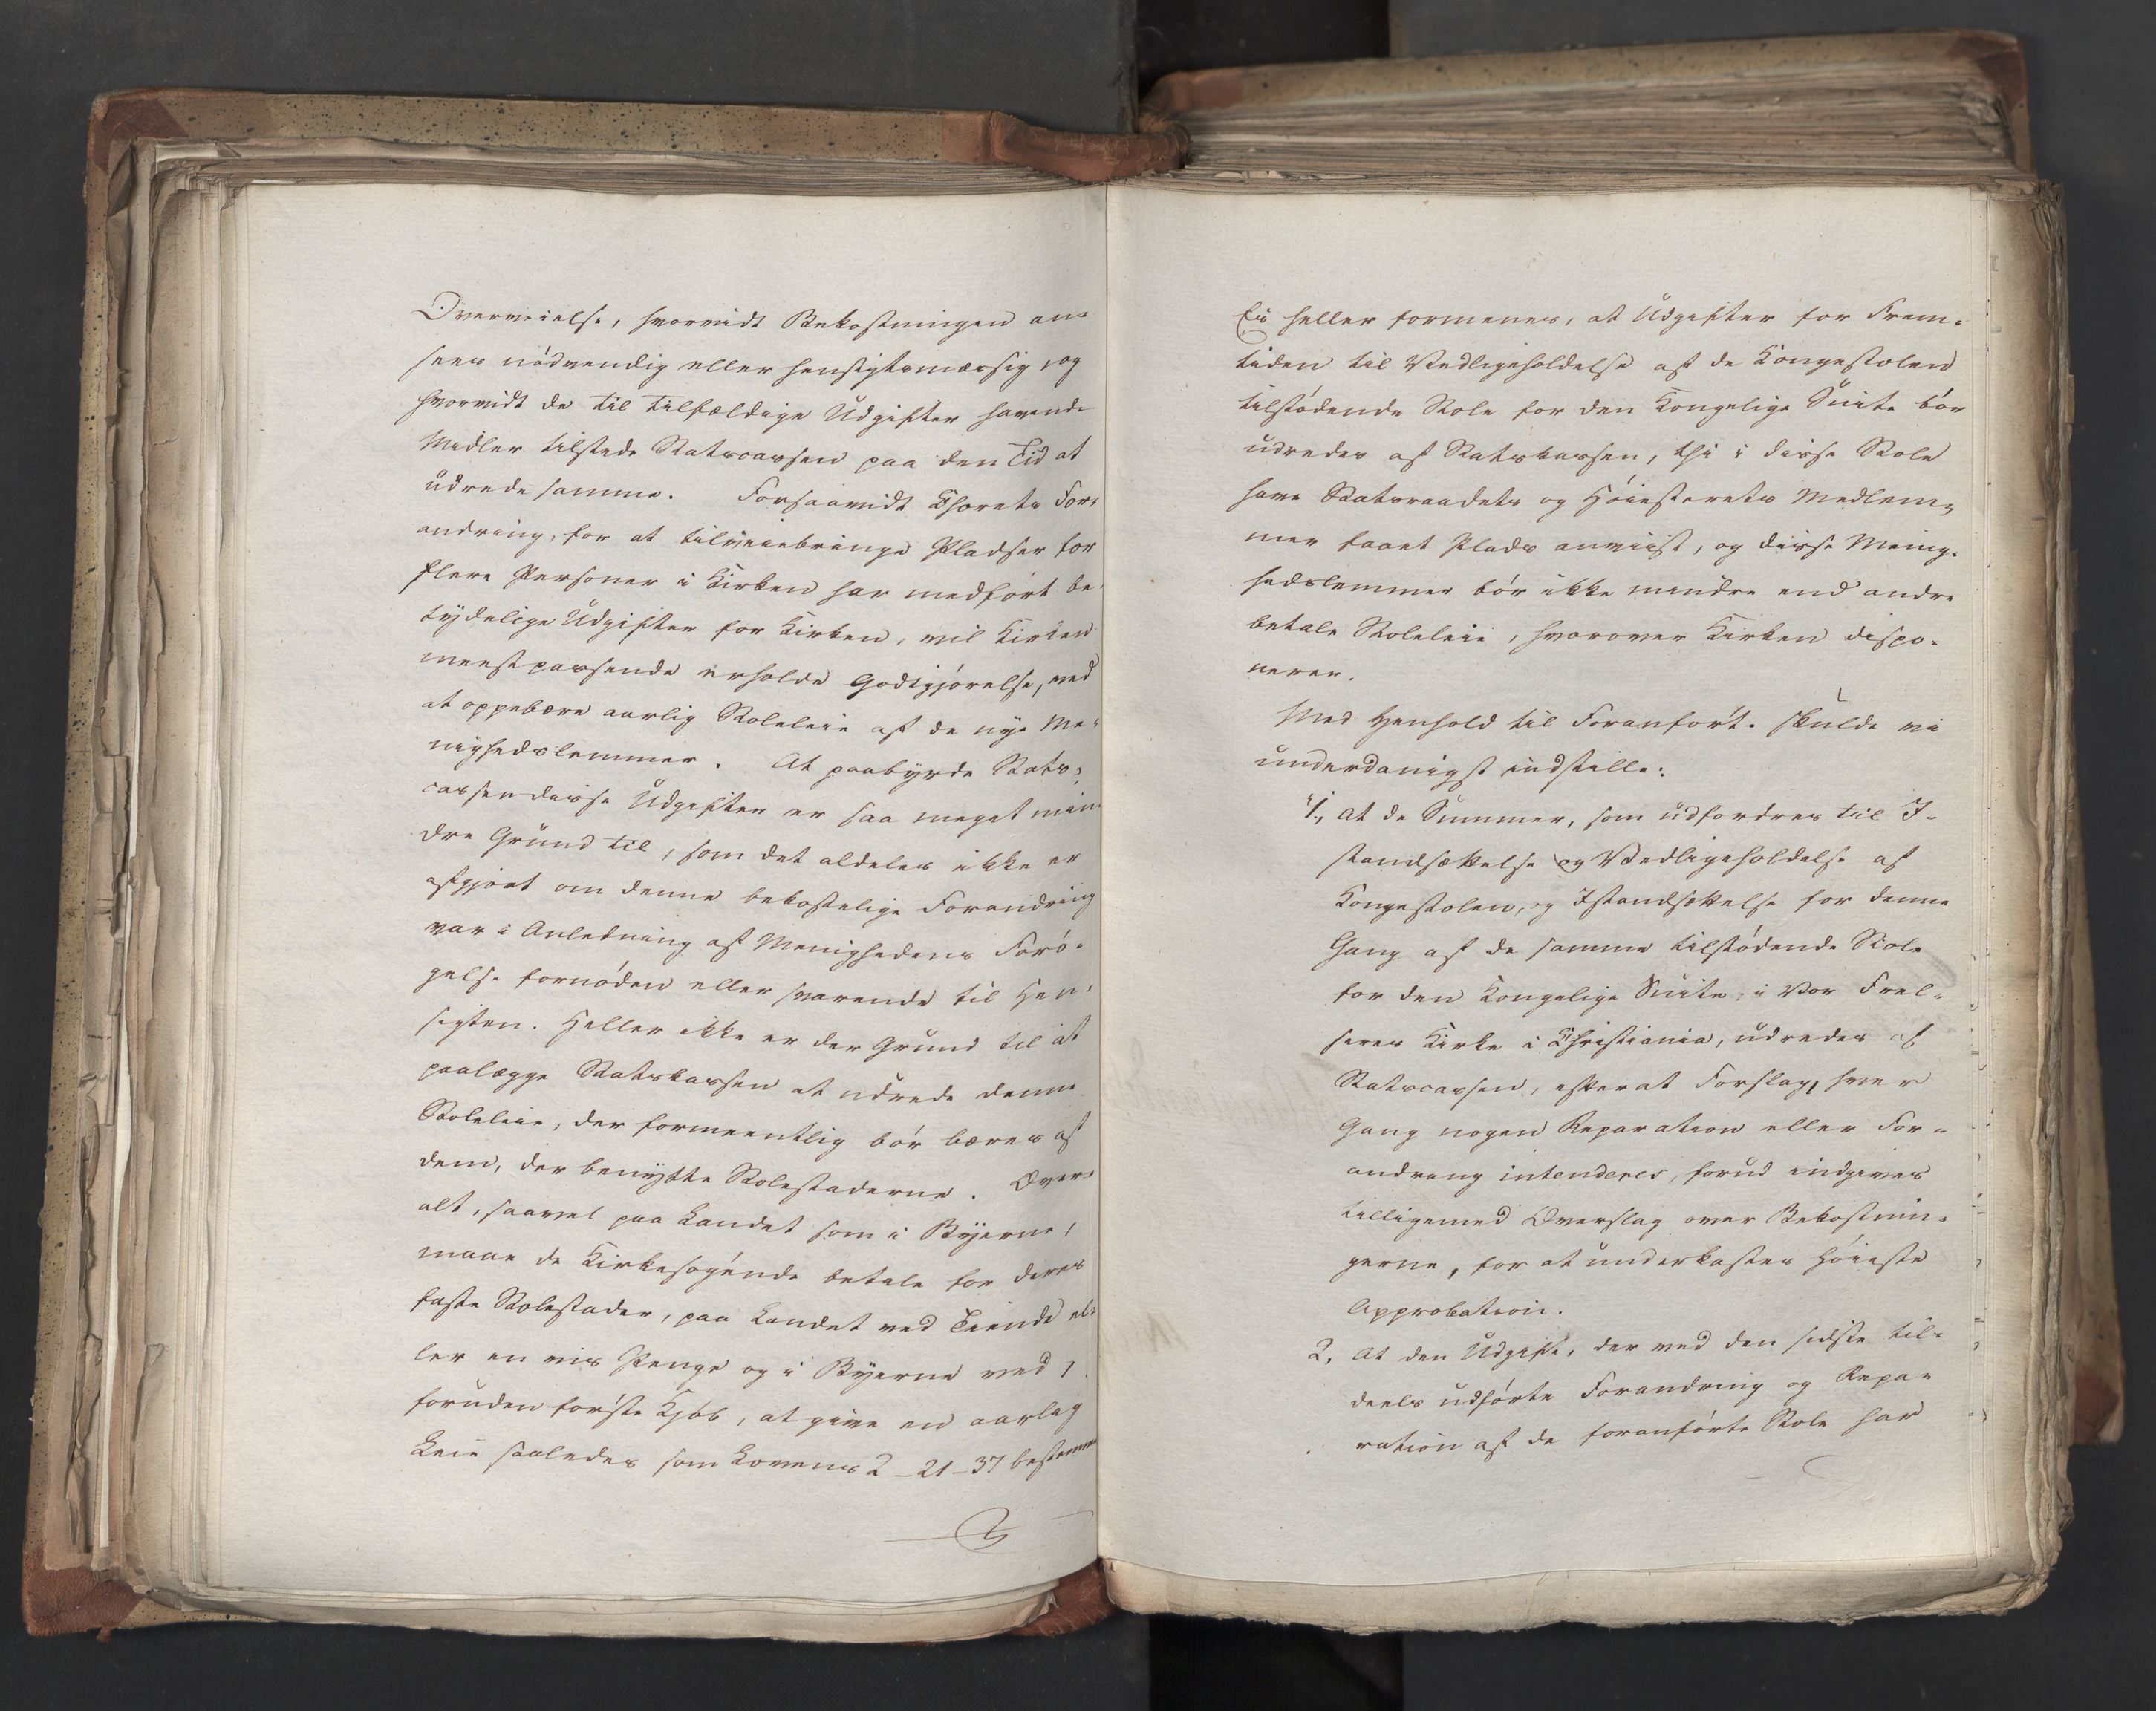 Overveielse, hvorvidt Bekostningen an-
sees nödvendig eller hensigtsmæssig, og
hvorvidt de til tilfældige Udgifter havende
Midler tilstede Statscassen paa den Tid at
udrede samme. Forsaavidt Chorets For-
andring, for at tilveiebringe Pladser for
flere Personer i Kirken har medfört be-
tydelige Udgifter for Kirken, vil Kirken
meest passende erholde Godtgjörelse, ved
at oppebære aarlig Stoleleie af de nye Me-
nighedslemmer. At paabyrde Stats-
cassen disse Udgifter er saa meget min-
dre Grund til, som det aldeles ikke er
afgjort om denne bekostelige Forandring
var i Anledning af Menighedens Forö-
gelse fornöden eller svarende til Hen-
sigten. Heller ikke er der Grund til at
paalægge Statskassen at udrede denne
Stoleleie, der formeentlig bör bæres af
dem, der benytte Stolestaderne. Over-
alt, saavel paa Landet som i Byerne,
maae de Kirkesögende betale for deres
faste Stolestader, paa Landet ved Tiende el-
ler en vis Penge og i Byerne ved,
foruden förste Kjöb, at give en aarlig
Leie saaledes som Lovens 2-21-37 bestemme
Ei heller formenes, at Udgifter for Frem-
tiden til Vedligeholdelse af de Kongestolen
tilstödende Stole for den Kongelige Suite bör
udredes af Statskassen, thi i disse Stole
have Statsraadets og Höiesterets Medlem-
mer faaet Plads anviist, og disse Menig-
hedslemmer bör ikke mindre end andre
betale Stoleleie, hvorover Kirken dispo-
nerer.
Med Henhold til Foranfört skulde vi
underdanigst indstille:
"1, at de Summer, som udfordres til I-
standsættelse og Vedligeholdelse af
Kongestolen, og Istandsættelse for denne
Gang af de samme tilstödende Stole
for den Kongelige Suite, i Vor Frel-
seres Kirke i Christiania, udredes af
Statscassen, efterat Forslag, hver
Gang nogen Reparation eller For-
andring intenderes, forud indgives
tilligemed Overslag over Bekostnin-
gerne, for at underkastes Höieste
Approbation.
2, at den Udgift, der ved den sidste til-
deels udförte Forandring og Repa-
ration af de foranförte Stole har